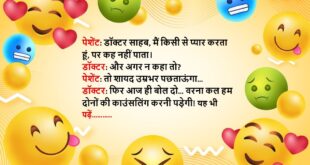 पेशेंट: डॉक्टर साहब, मैं किसी से प्यार करता
हूं, पर कह नहीं पाता।
डॉक्टर: और अगर न कहा तो?
पेशेंट: तो शायद उम्रभर पछताऊंगा...
डॉक्टर: फिर आज ही बोल दो... वरना कल हम
दोनों की काउंसलिंग करनी पड़ेगी! यह भी
पढ़ें..........